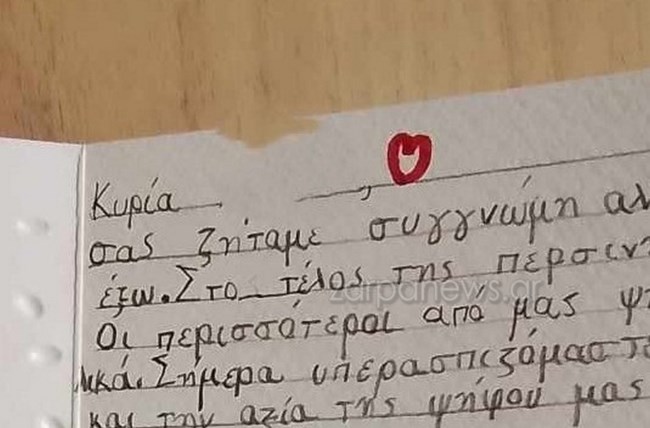 Κυρία ,
σας ζητάμε συγγνώμη αν
έξω. Στο τέλος της περσιν
Οι περισσότεροι από μας ψ
ικά. Σήμερα υπερασπιζόμαστε
και την αξία της ψήφου μας
zarpanews.gr